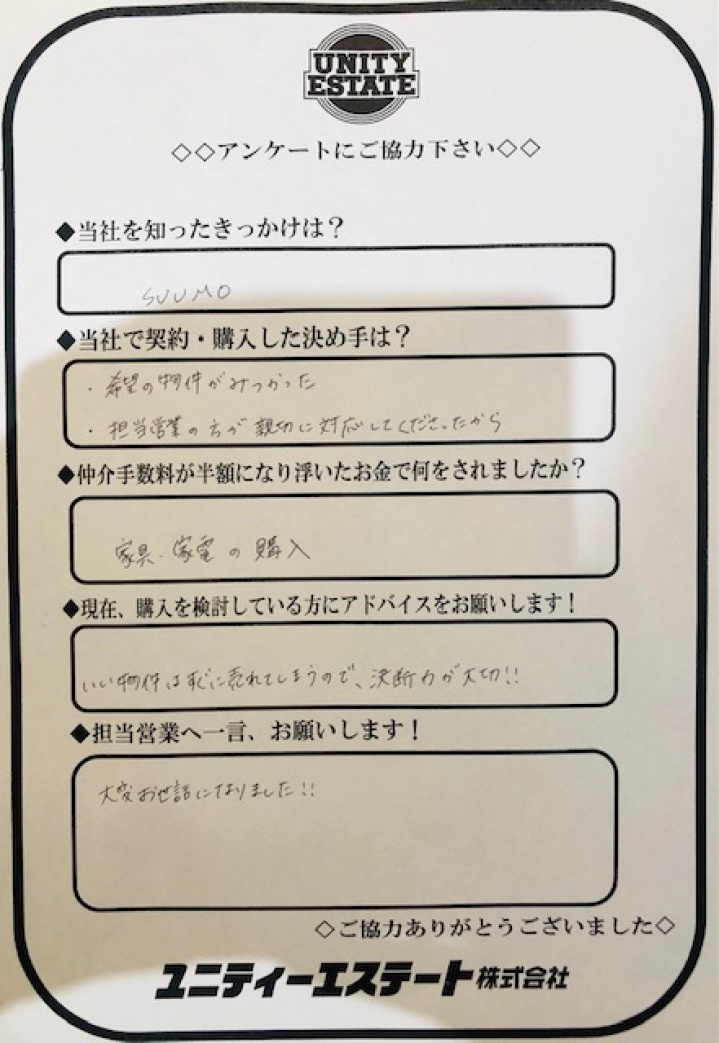 UNITY
ESTATE
◇◇アンケートにご協力下さい◇◇
◆当社を知ったきっかけは？
SUUMO
◆当社で契約・購入した決め手は？
・希望の物件がみつかった
・担当営業の方が親切に対応してくださったから
◆仲介手数料が半額になり浮いたお金で何をされましたか？
家具・家電の購入
◆現在、購入を検討している方にアドバイスをお願いします！
いい物件はすぐに売れてしまうので、決断力が大切!!
◆担当営業へ一言、お願いします！
大変お世話になりました!!
◇ご協力ありがとうございました◇
ユニティーエステート株式会社